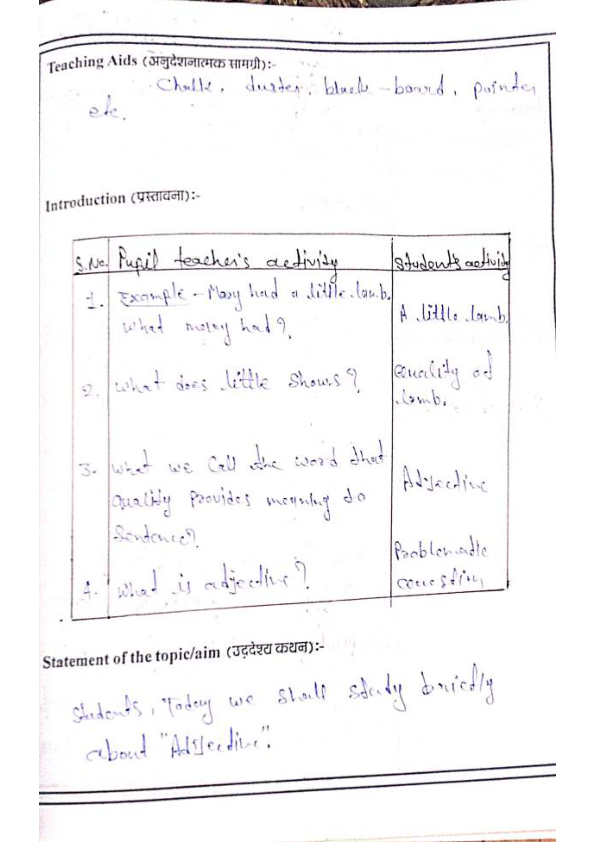 Teaching Aids (अनुदेशनात्मक सामग्री):-
Chalk, duster, black-board, pointer
etc.
Introduction (प्रस्तावना):-
S.No. Pupil teacher's activity Students activity
1. Example - Mary had a little lamb. A little lamb.
What mary had?
2. What does little shows? Quality of
lamb.
3. What we call the word that Adjective
Quality Provides meaning to
Sentence?
4. What is adjective? Problematic
question
Statement of the topic/aim (उद्देश्य कथन):-
Students, Today we shall study briefly
about "Adjective".